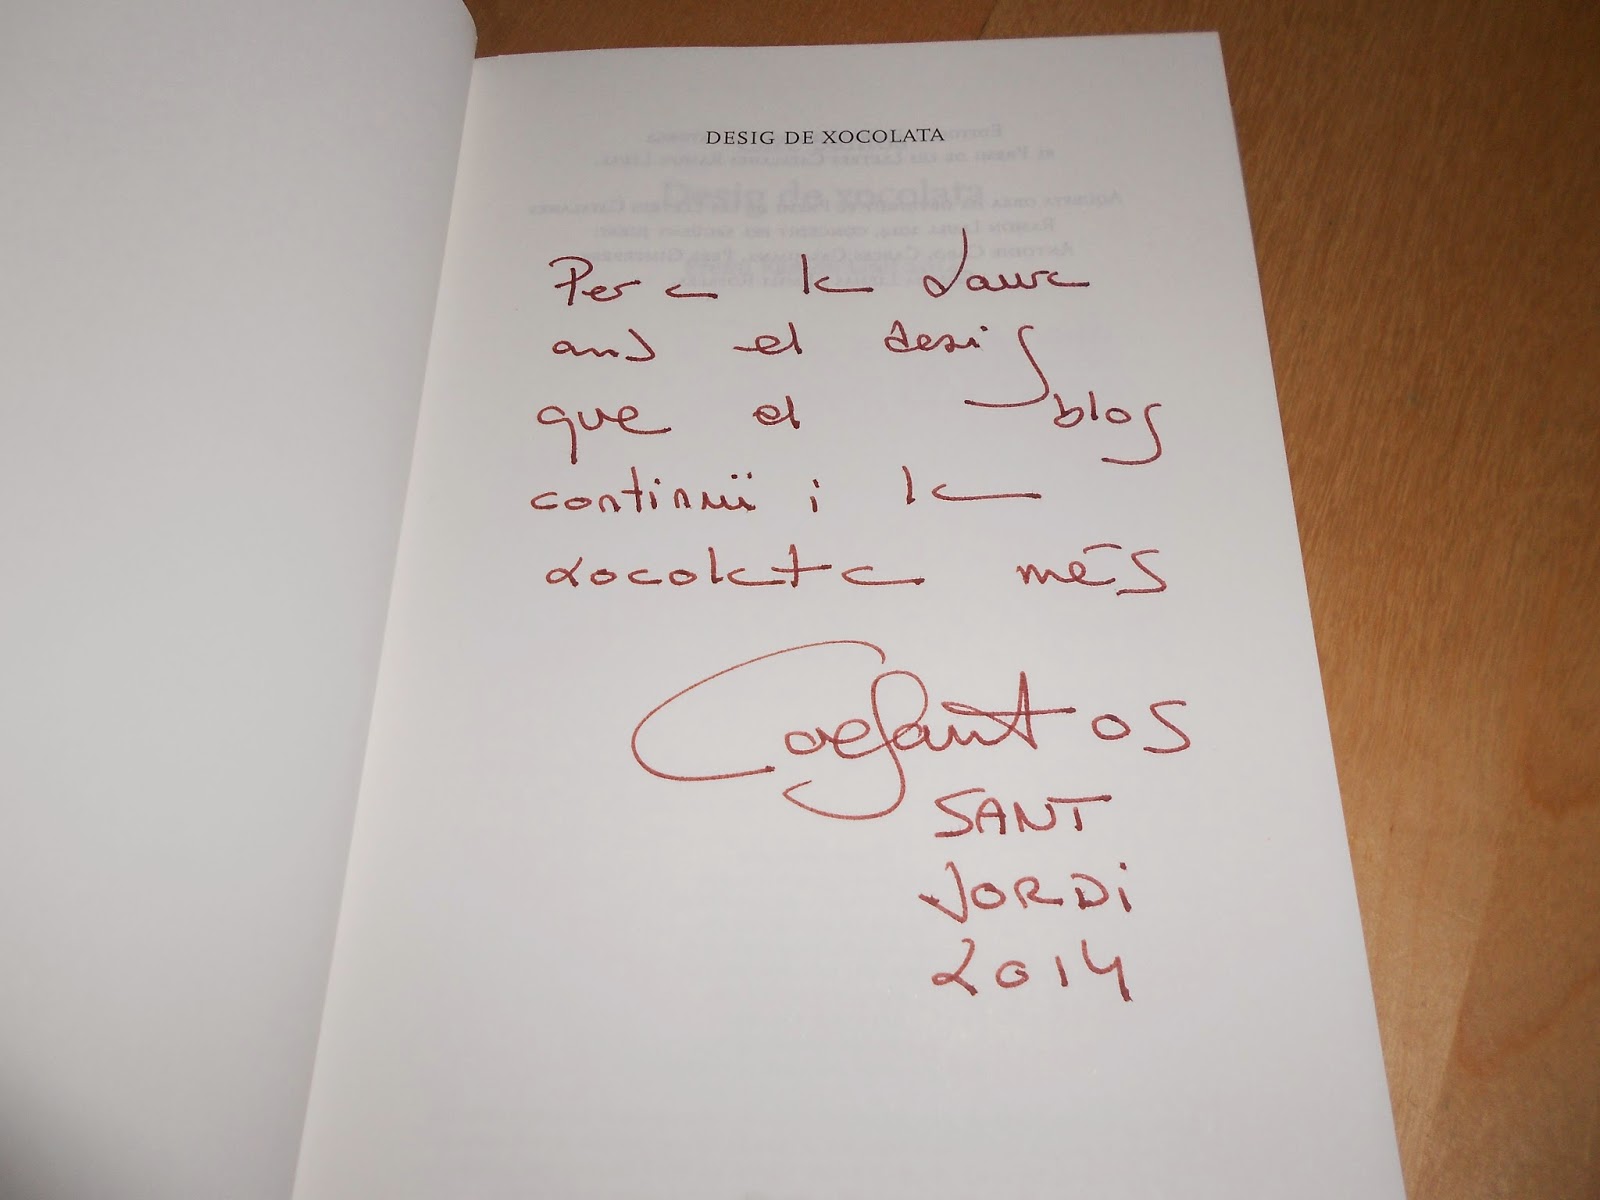 DESIG DE XOCOLATA
Desig de xocolata
Per a la Laura
amb el desig
que el blog
continuï i la
xocolata més
SANT
JORDi
2014